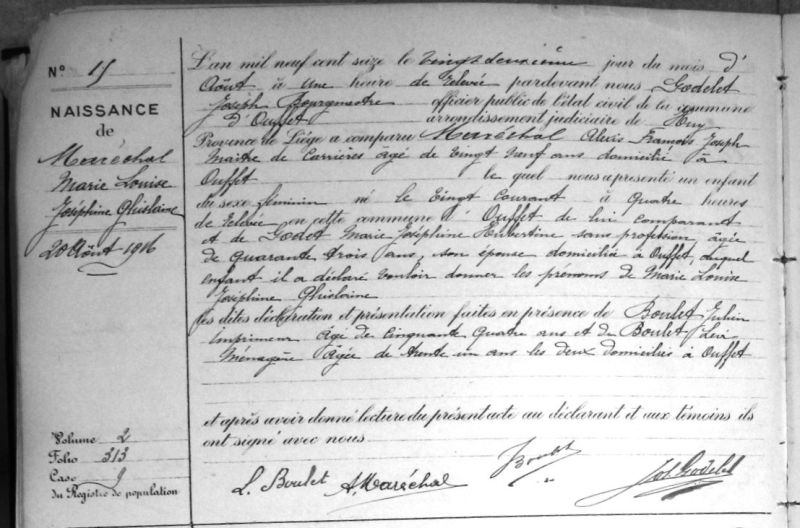 N° 15
NAISSANCE
de
Maréchal
Marie Louise
Joséphine Ghislaine
20 Août 1916
L'an mil neuf cent seize le vingt deuxième jour du mois d'
Août à une heure de relevée pardevant nous Godelet
Joseph Bourgmestre officier public de l'état civil de la commune
d'Ouffet arrondissement judiciaire de Huy
Province de Liége a comparu Maréchal Alexis François Joseph
Maître de Carrières âgé de vingt neuf ans domicilié à
Ouffet le quel nous a présenté un enfant
du sexe féminin né le vingt courant à quatre heures
de relevée en cette commune d'Ouffet de lui comparant
et de Godet Marie Joséphine Hubertine sans profession, âgée
de quarante trois ans, son épouse domiciliée à Ouffet, auquel
enfant il a déclaré vouloir donner les prénoms de Marie Louise
Joséphine Ghislaine
Les dites déclaration et présentation faites en présence de Boulet Julien
Imprimeur âgé de cinquante quatre ans et de Boulet
Ménagère âgée de trente un ans les deux domiciliés à Ouffet
et après avoir donné lecture du présent acte au déclarant et aux témoins ils
ont signé avec nous
Volume 2
Folio 313
Case 9
du Registre de population
L. Boulet A. Maréchal J Boulet Jos Godelet